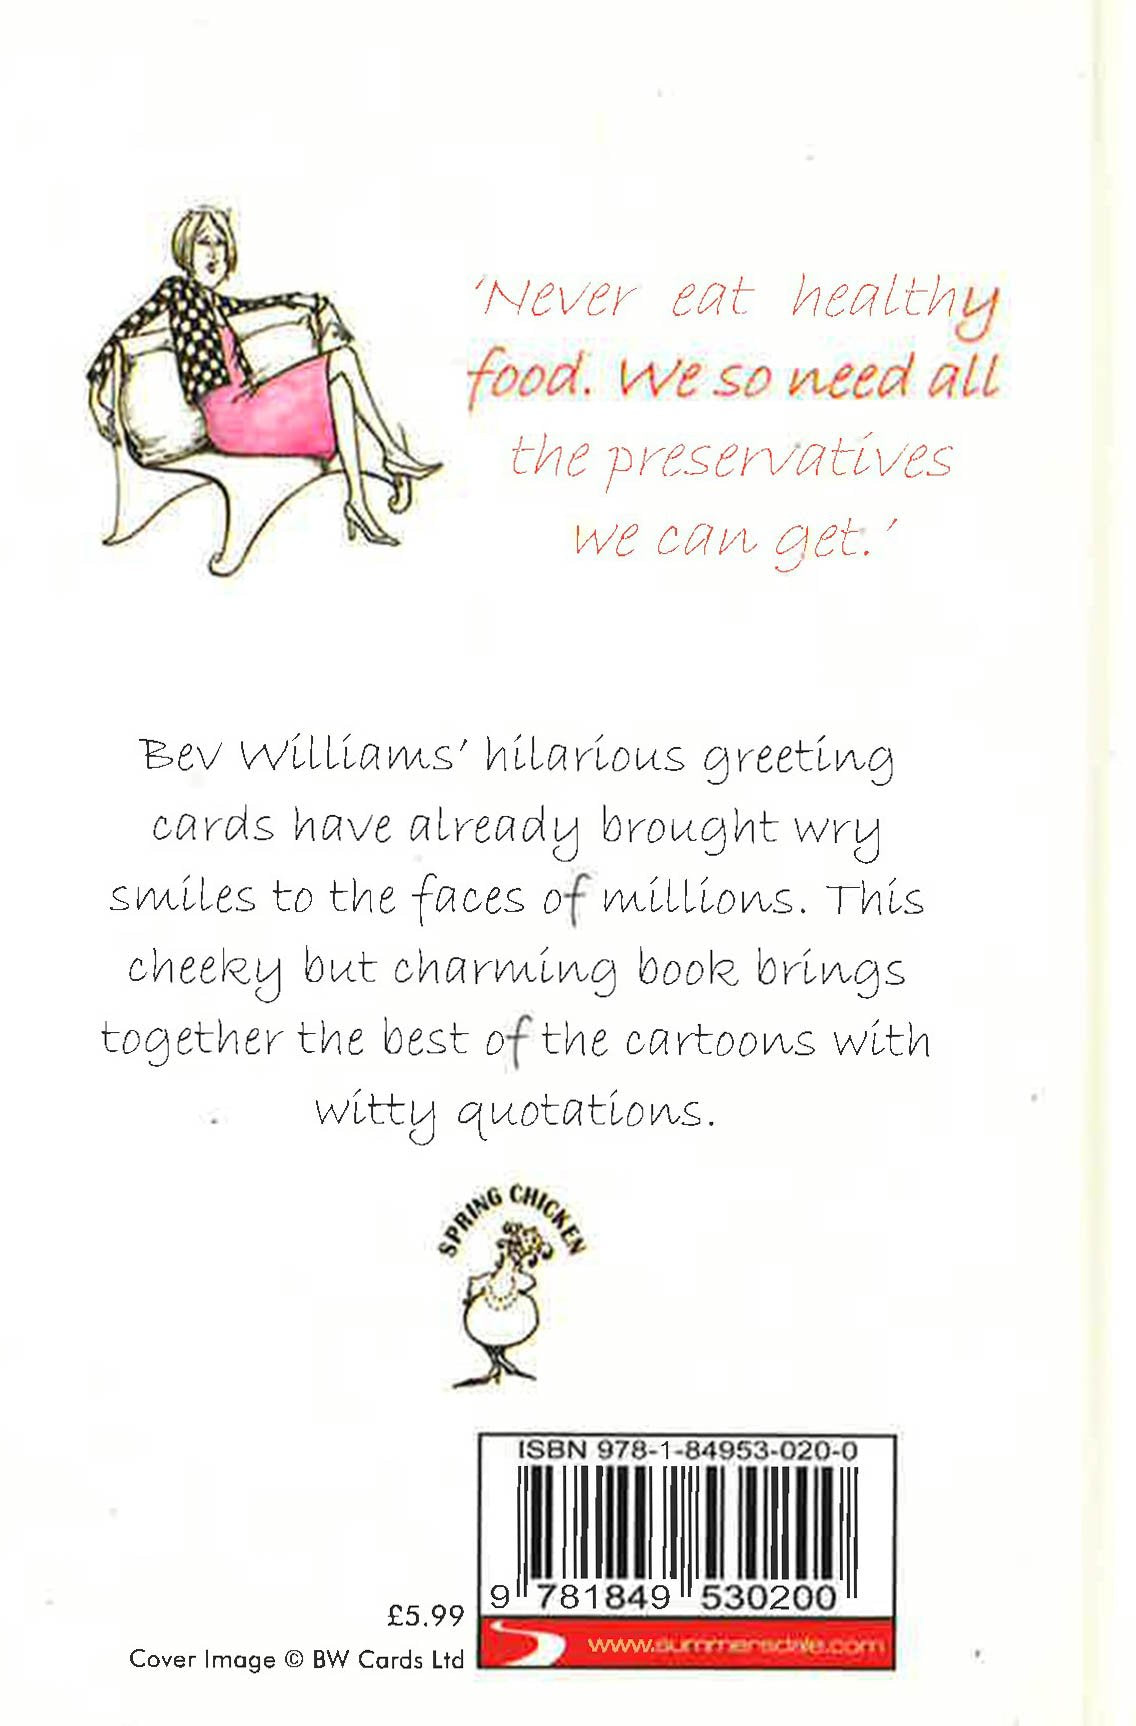 'Never eat healthy
food. We so need all
the preservatives
we can get.'
Bev Williams' hilarious greeting
cards have already brought wry
smiles to the faces of millions. This
cheeky but charming book brings
together the best of the cartoons with
witty quotations.
SPRING CHICKEN
ISBN 978-1-84953-020-0
9 781849 530200
£5.99
www.summersdale.com
Cover Image © BW Cards Ltd